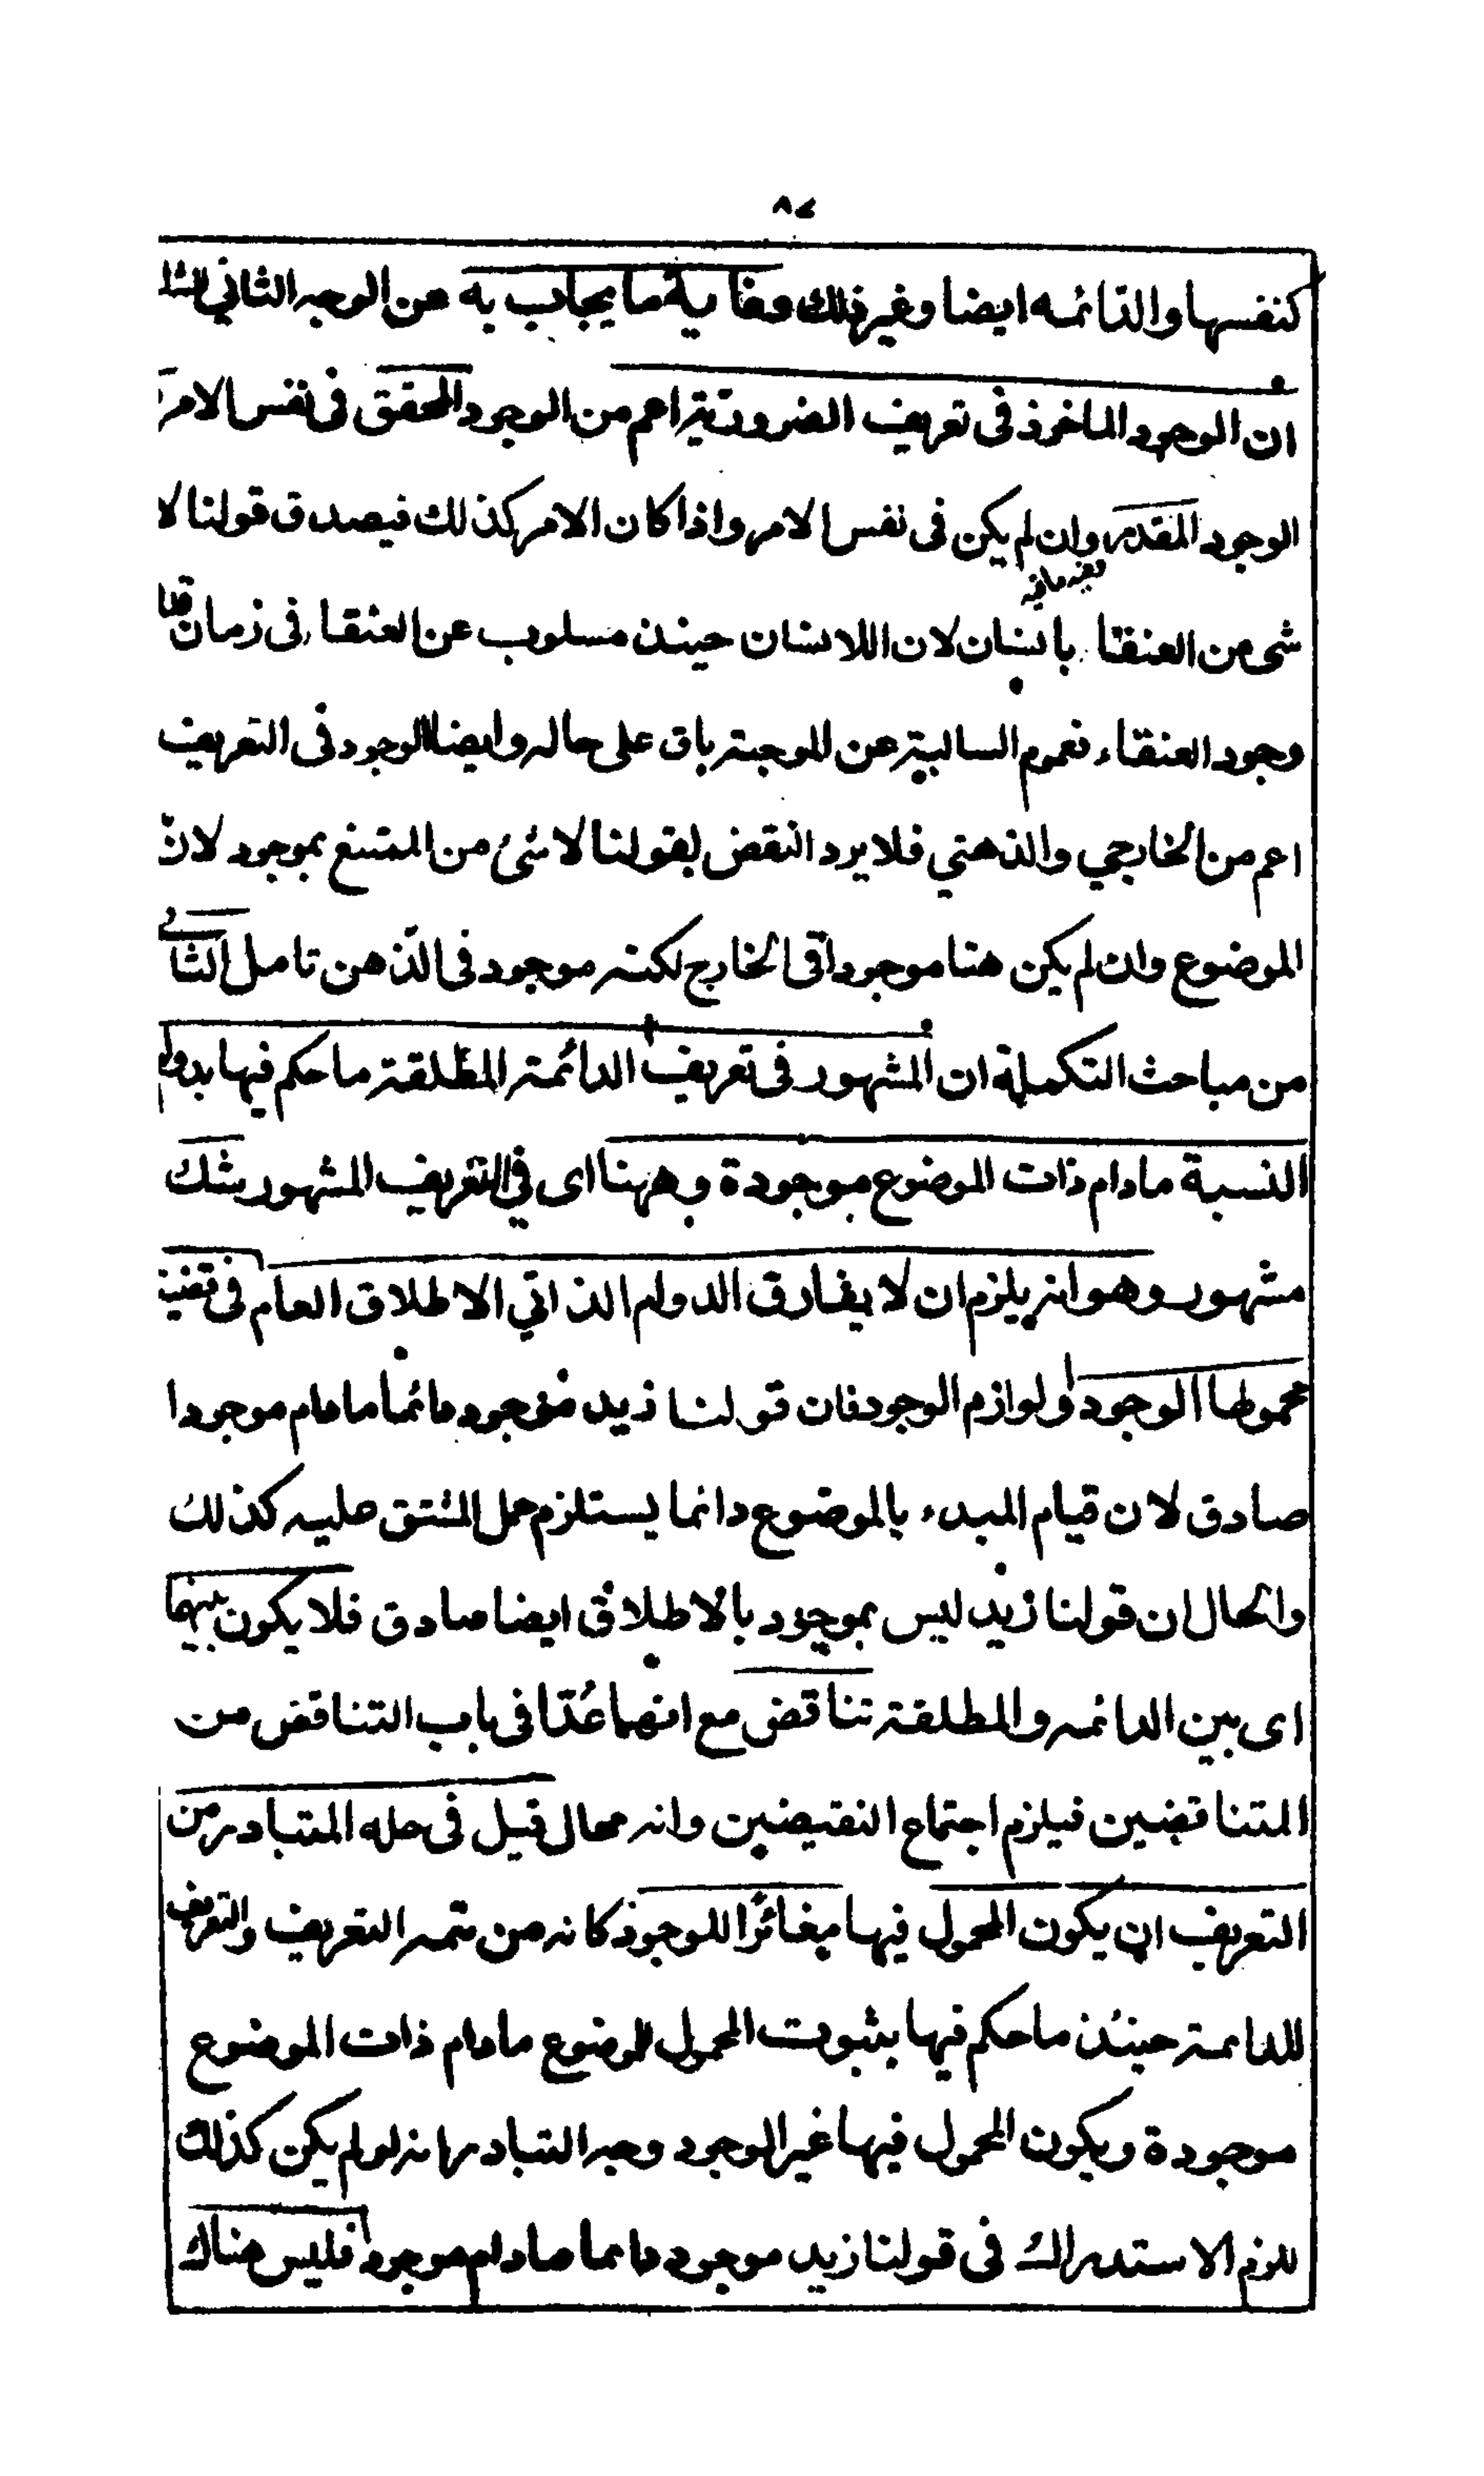 ٨٧
كنفسها والدّائمه ايضا وغير ذلك وغاية ما يجاب به عن الوجه الثاني للشك
ان الوجود الماخوذ فى تعريف الضرورية اعم من الوجود المحقق فى نفس الامر
الوجود المقدر وان لم يكن فى نفس الامر واذا كان الامر كذلك فيصدق قولنا لا
شى من العنقا بانسان لان اللا نسان حينئذ مسلوب عن العنقا فى زمان
وجود العنقاء فعموم السالبية عن الموجبة باق على حاله وايضا الوجود فى التعريف
اعم من الخارجي والذهني فلا يرد النقض بقولنا لا شئ من الممتنع بموجود لان
الموضوع وان لم يكن هنا موجودا فى الخارج لكنه موجود فى الذهن تامل الثانے
من مباحث التكملة ان المشهور فى تعريف الدائمة المطلقة ما حكم فيها بدوام
النسبة مادام ذات الموضوع موجودة وههنا اى في التعريف المشهور شك
مشهور وهو انه يلزم ان لا يفارق الدوام الذاتي الاطلاق العام فى قضية
محمولها الوجود او لوازم الوجود فان قولنا زيد موجود دائما مادام موجودا
صادق لان قيام المبدء بالموضوع دائما يستلزم حمل المشتق عليه كذلك
والحال ان قولنا زيد ليس بموجود بالاطلاق ايضا صادق فلا يكون بينهما
اى بين الدائمه والمطلقة تناقض مع انهما عُدّا فى باب التناقض من
المتناقضين فيلزم اجتماع النقيضين وانه محال قيل فى حله المتبادر من
التعريف ان يكون المحمول فيها مغائرًا للوجود كانه من تتمه التعريف والتعريف
للدائمة حينئذ ما حكم فيها بثبوت المحمول للموضوع مادام ذات الموضوع
موجودة ويكون المحمول فيها غير الوجود وجه التبادر انه لو لم يكن كذلك
للزم الاستدراك فى قولنا زيد موجود دائما مادام موجودا فليس هناك